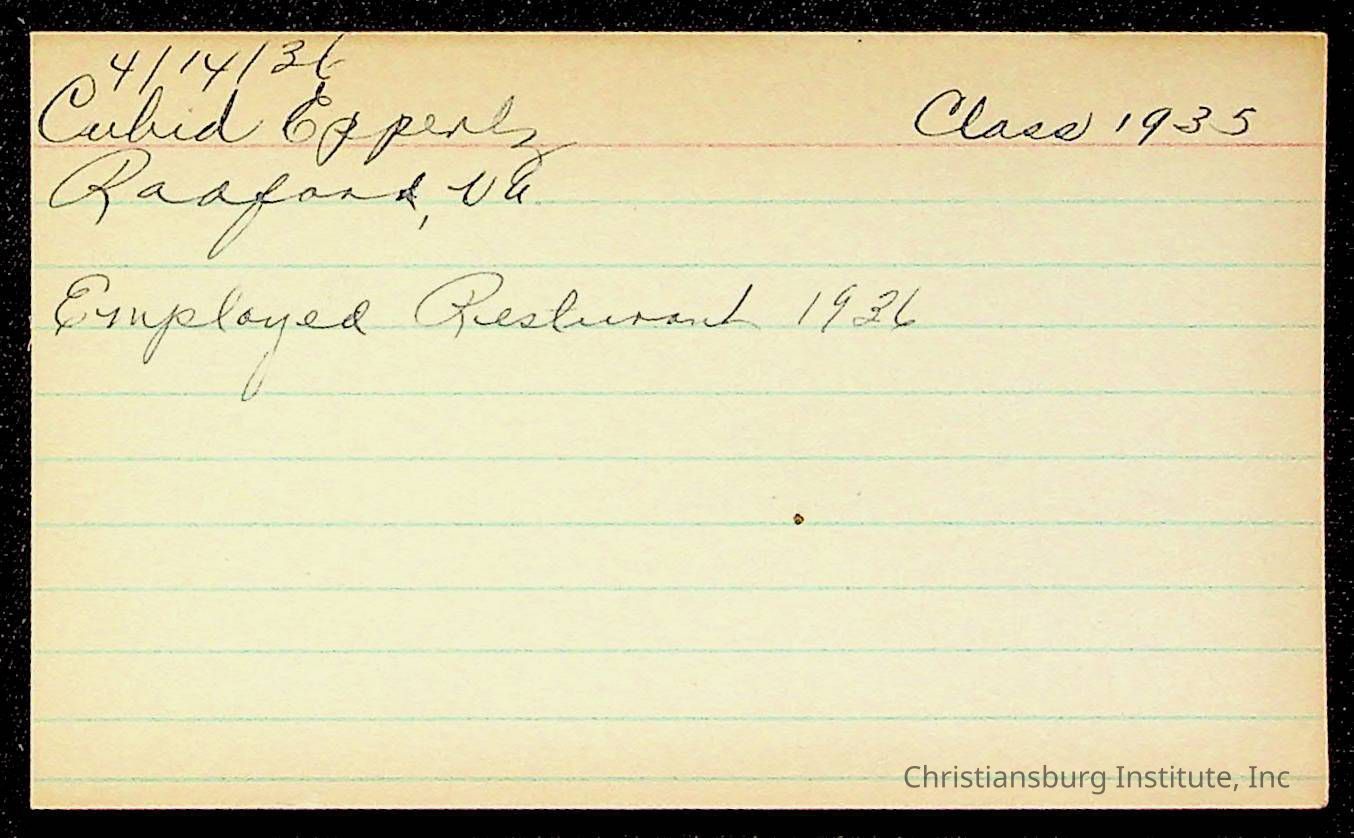 4/14/36
Cubid Epperly Class 1935
Radford, Va.
Employed Resturant 1936
Christiansburg Institute, Inc